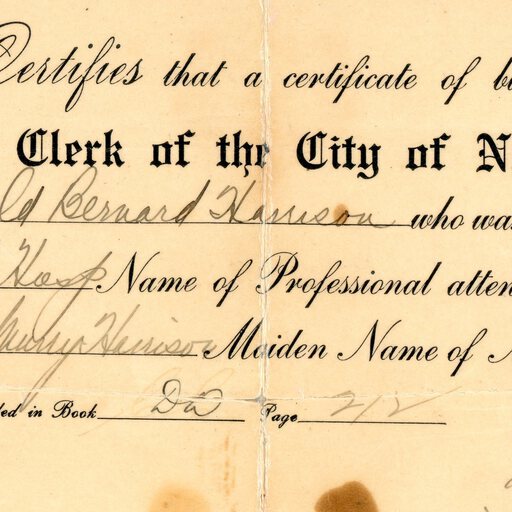 Certifies that a certificate of b
Clerk of the City of N
ld Bernard Harrison who wa
Hosp Name of Professional atten
Harrison Maiden Name of
ded in Book Page 212